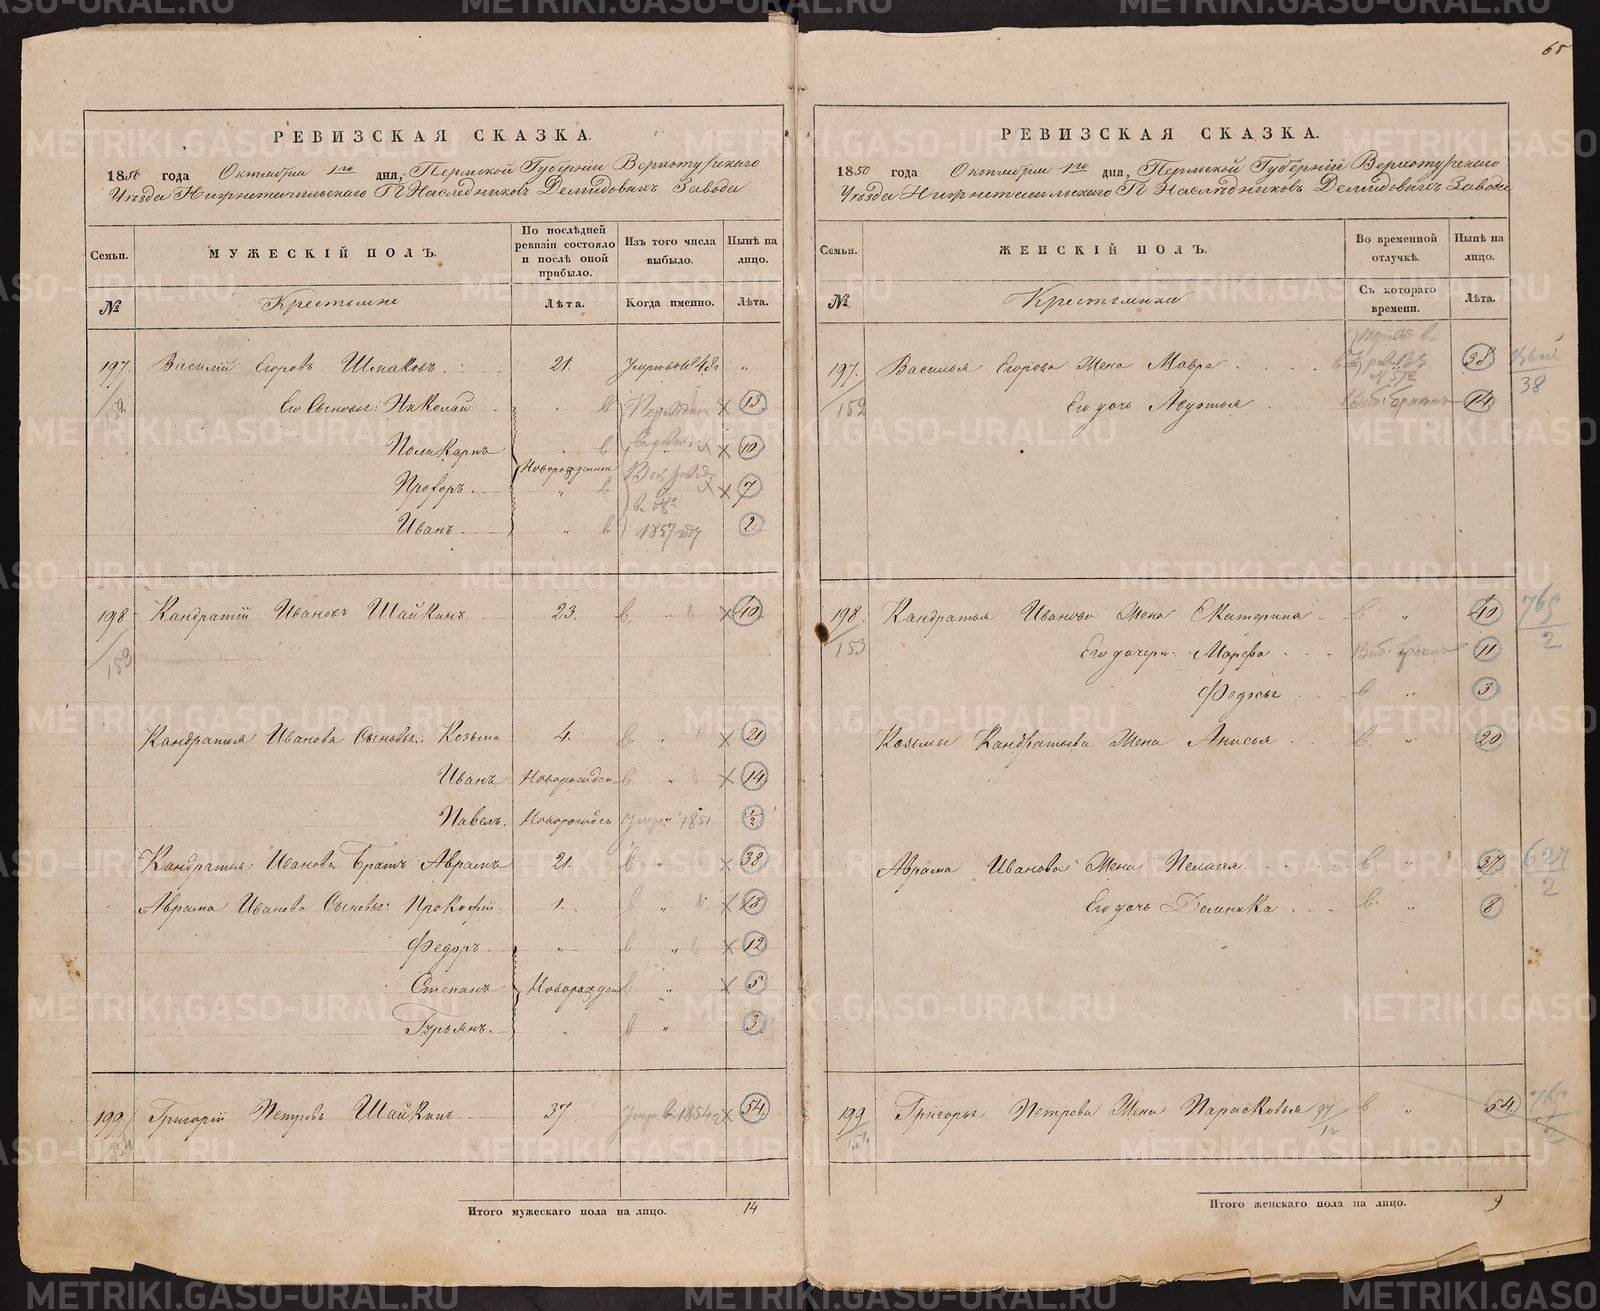 65
РЕВИЗСКАЯ СКАЗКА.
1850 года Октября 1го дня, Пермской Губерніи Верхотурскаго
Уѣзда Нижнетагильскаго Гг. Наслѣдниковъ Демидовыхъ Завода
Семьи. МУЖЕСКІЙ ПОЛЪ. По послѣдней ревизіи состояло и послѣ оной прибыло. Изъ того числа выбыло. Нынѣ на лицо.
№ Крестьяне Лѣта. Когда именно. Лѣта.
197. Василій Егоровъ Шмаковъ 21. "
152 Его Сыновья: Николай " 13
Поликарпъ " 10
Новорожденные
Прохоръ " 7
Иванъ " 1857 году 2
198 Кандратій Ивановъ Шайкинъ 23. " 40
153
Кандратья Иванова Сыновья: Козьма 4. " 21
Иванъ Новорожден " 14
Павелъ. Новорожден 1851 1/2
Кандратья Иванова Братъ Аврамъ 21. " 38
Аврама Иванова Сыновья: Прокофій 1. " 18
Федоръ " " 12
Степанъ Новорожден " 5
Гурьянъ. " " 3
199 Григорій Петровъ Шайкинъ 37 Умре въ 1854 г 54
154
Итого мужескаго пола на лицо. 14
РЕВИЗСКАЯ СКАЗКА.
1850 года Октября 1го дня, Пермской Губерніи Верхотурскаго
Уѣзда Нижнетагильскаго Гг. Наслѣдниковъ Демидовыхъ Завода
Семьи. ЖЕНСКІЙ ПОЛЪ. Во временной отлучкѣ. Нынѣ на лицо.
№ Крестьянки Съ котораго времени. Лѣта.
197. Василья Егорова Жена Мавра 38 38
152 Его дочь Авдотья 14
198. Кандратья Иванова Жена Екатерина " 40 765/2
153 Его дочери: Марфа 11
Федосья " 3
Козьмы Кандратьева Жена Анисья " 20
Аврама Иванова Жена Пелагея " 37 627/2
Его дочь Домника " 8
199 Григорья Петрова Жена Парасковья " 54. 765/2
154
Итого женскаго пола на лицо. 9
METRIKI.GASO-URAL.RU